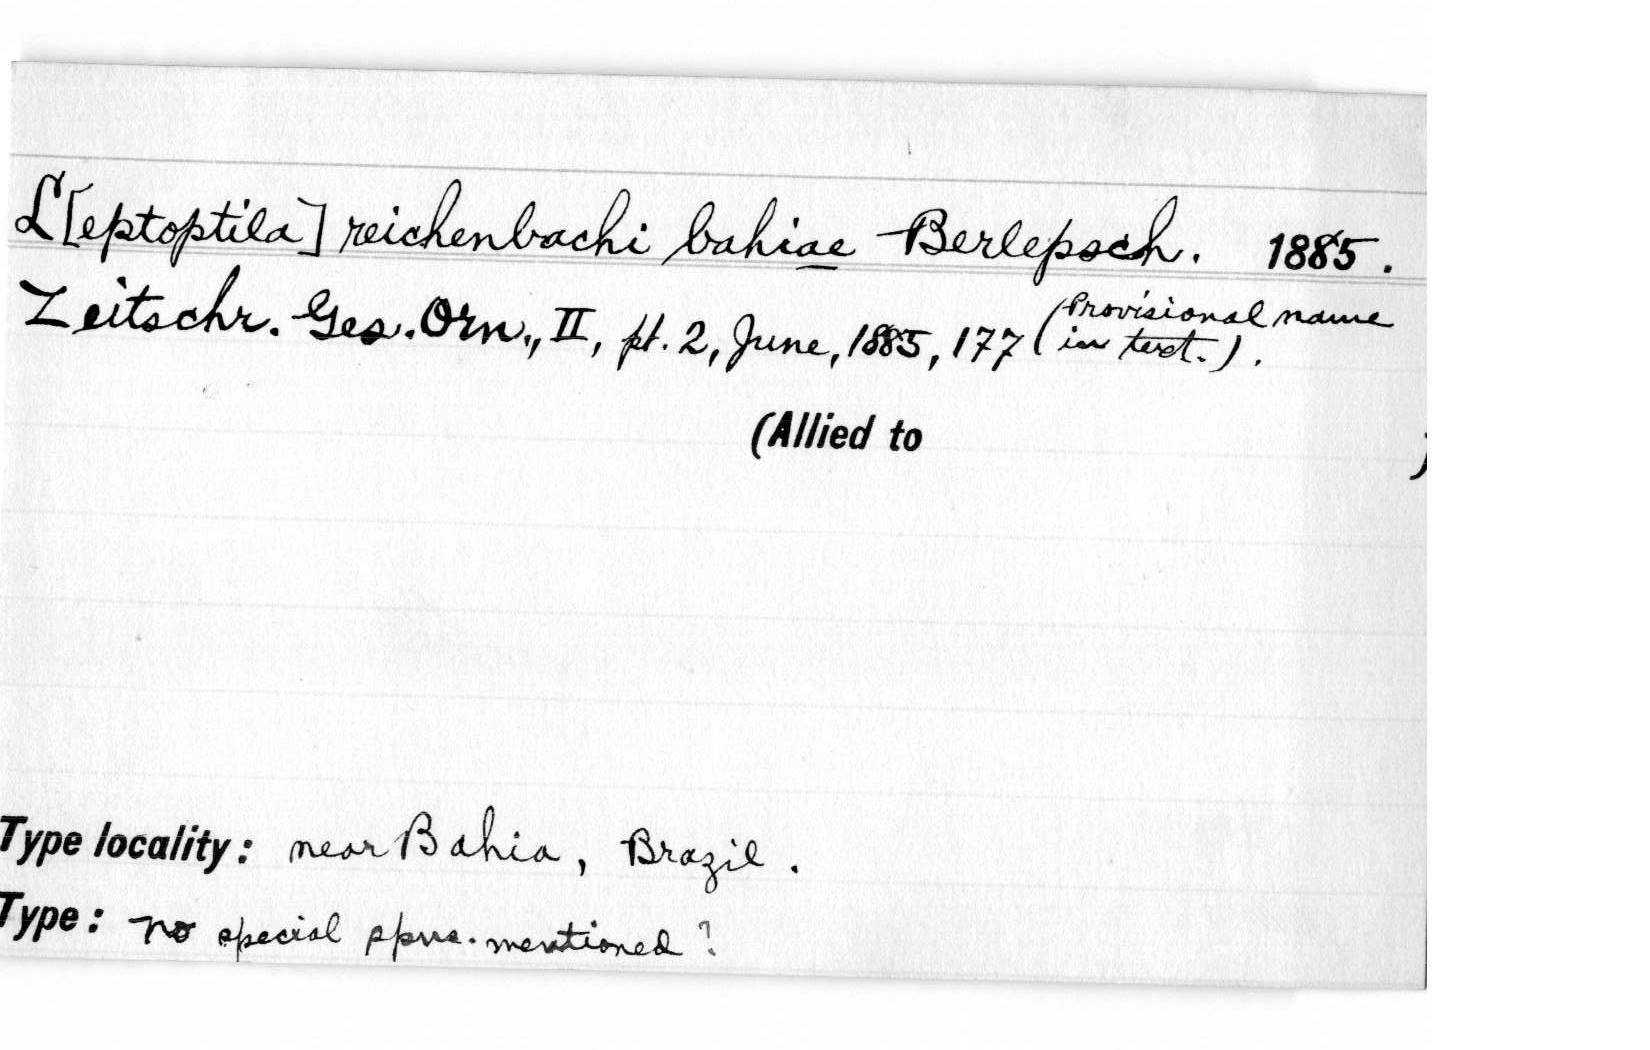 L[eptoptila] reichenbachi bahiae Berlepsch. 1885.
Zeitschr. Ges. Orn., II, pt. 2, June, 1885, 177 (Provisional name
in text.).
(Allied to )
Type locality: near Bahia, Brazil.
Type: no special spms. mentioned?